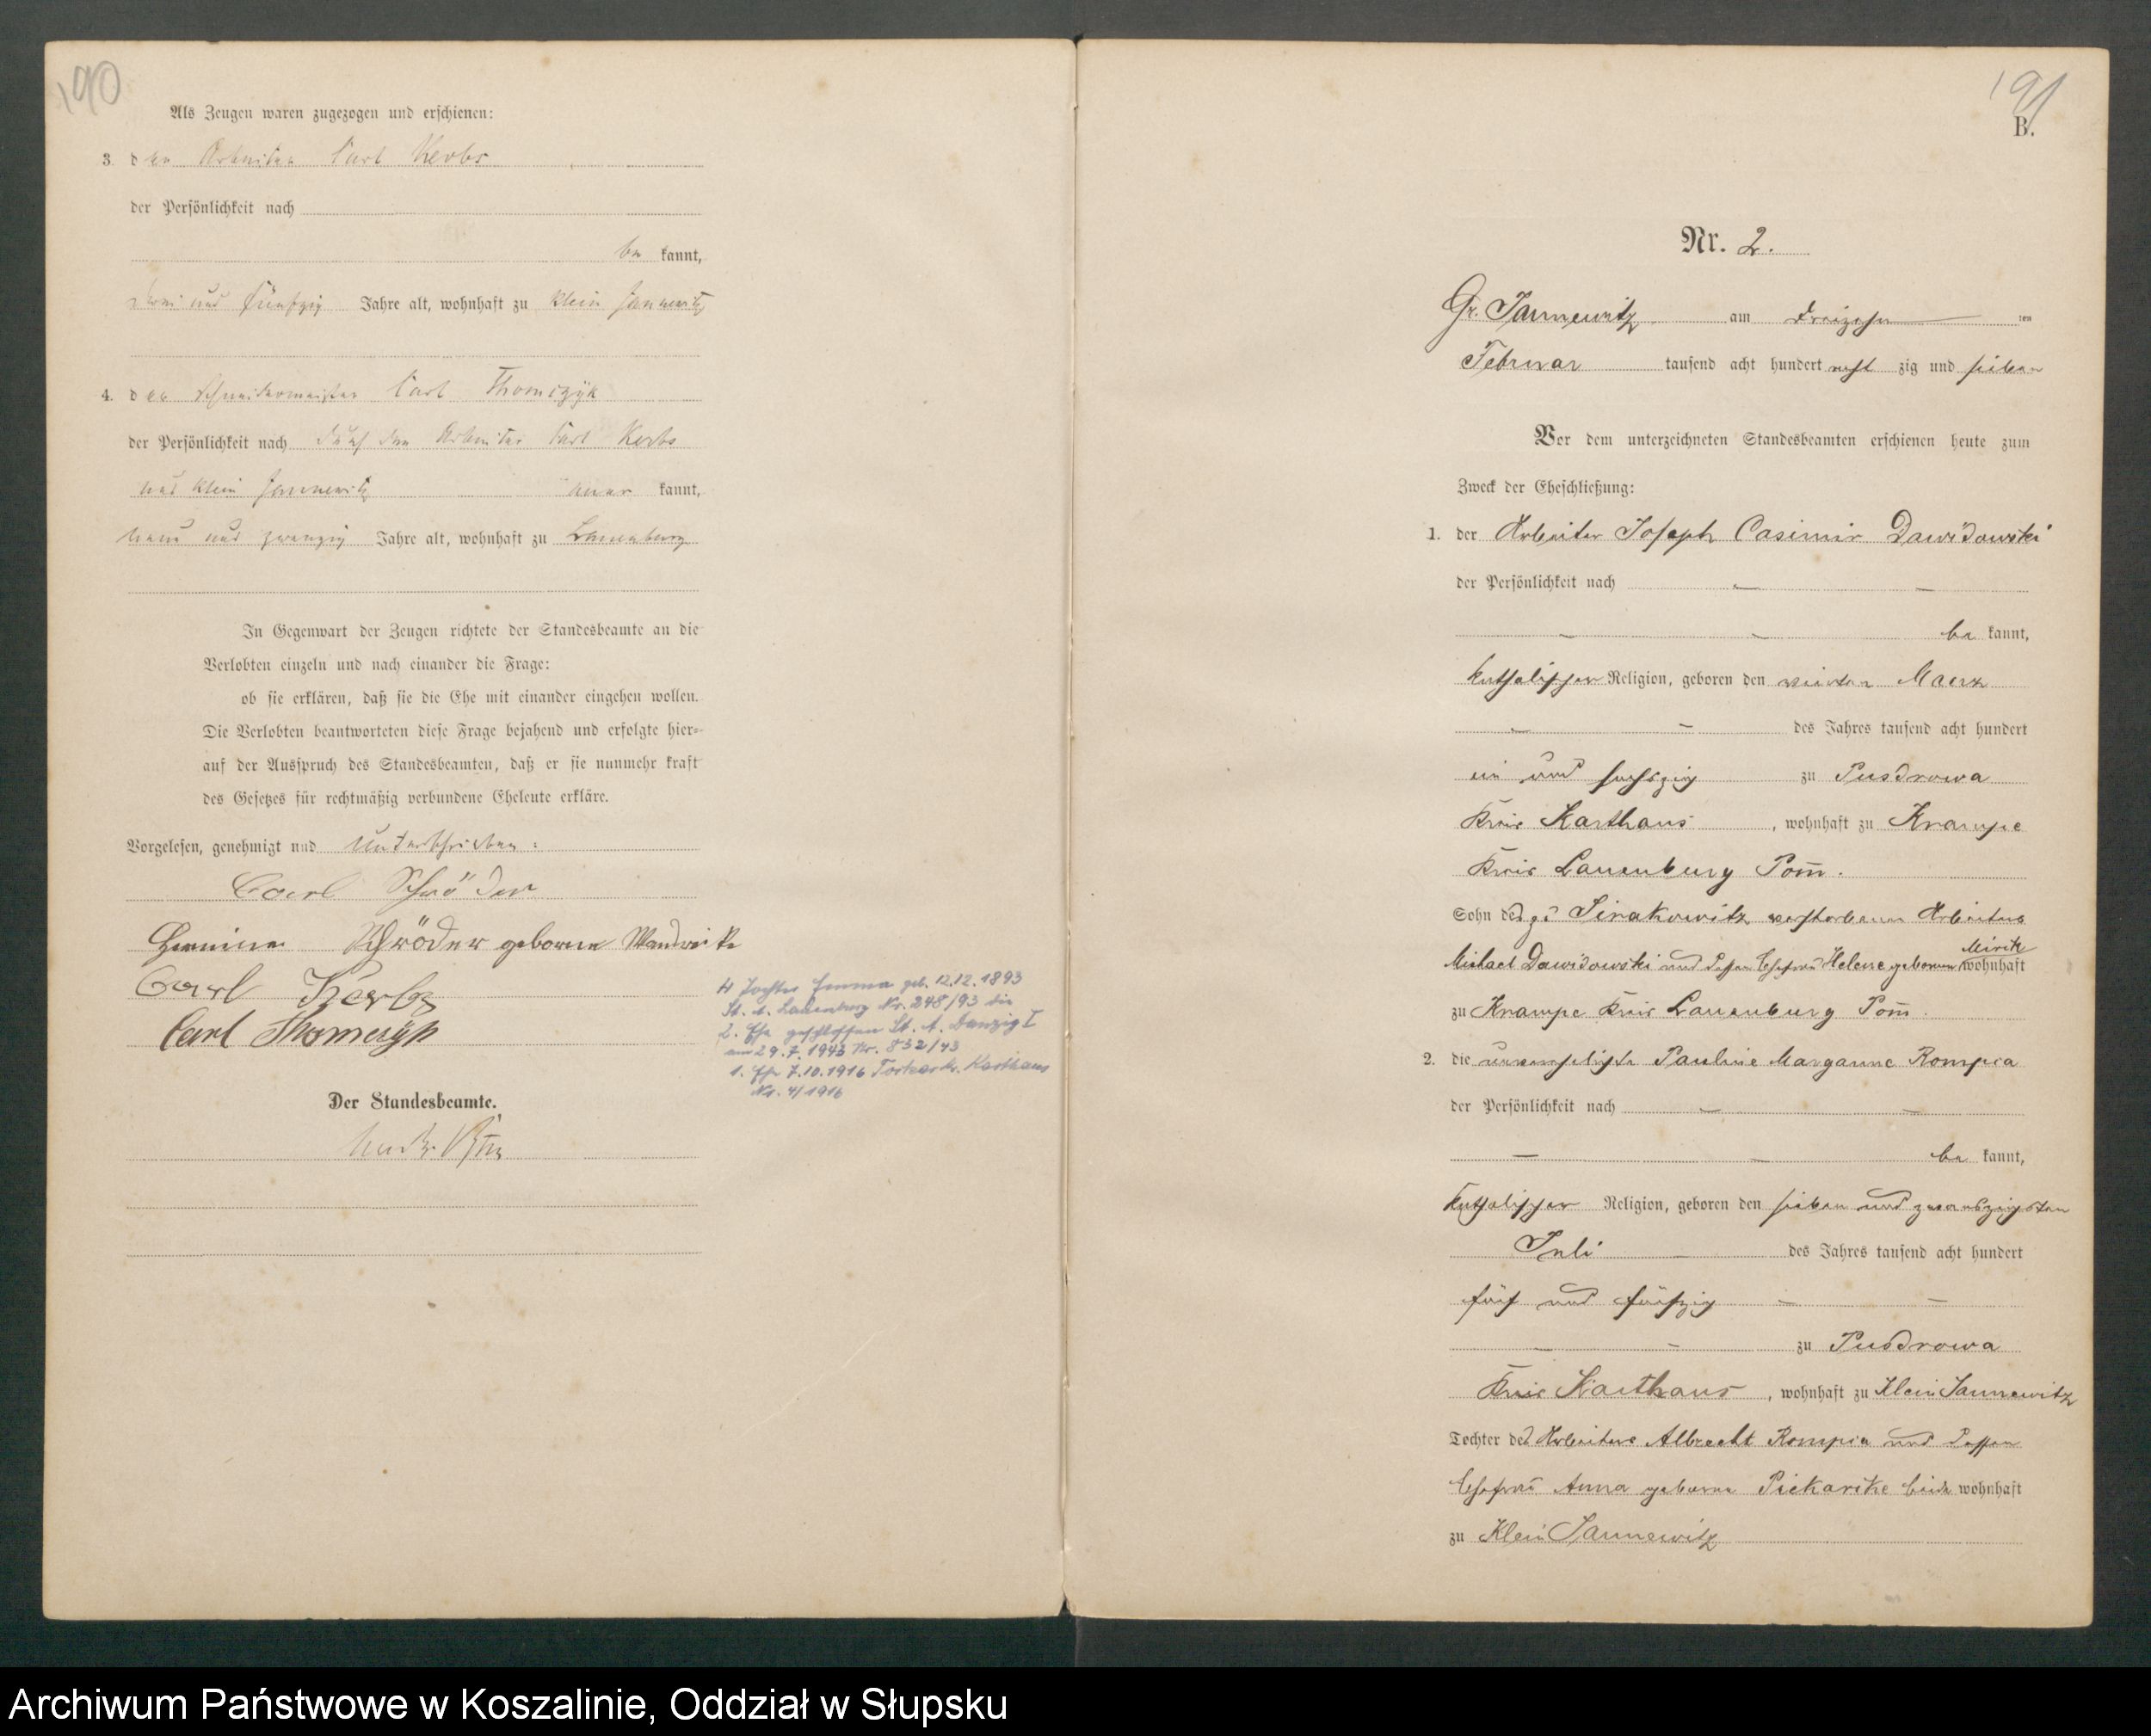 190
Als Zeugen waren zugezogen und erschienen:
3. der Arbeiter Carl Kerbs
der Persönlichkeit nach
be kannt,
drei und fünfzig Jahre alt, wohnhaft zu Klein Jannewitz
4. der Schneidermeister Carl Thomczyk
der Persönlichkeit nach durch den Arbeiter Carl Kerbs
aus Klein Jannewitz aner kannt,
neun und zwanzig Jahre alt, wohnhaft zu Lauenburg
In Gegenwart der Zeugen richtete der Standesbeamte an die
Verlobten einzeln und nach einander die Frage:
ob sie erklären, daß sie die Ehe mit einander eingehen wollen.
Die Verlobten beantworteten diese Frage bejahend und erfolgte hier-
auf der Ausspruch des Standesbeamten, daß er sie nunmehr kraft
des Gesetzes für rechtmäßig verbundene Eheleute erkläre.
Vorgelesen, genehmigt und unterschrieben:
Carl Schröder
Hermine Schröder geborne
Carl Kerbs
Carl Thomczyk
Tochter Emma geb. 12.12.1893
St. A. Lauenburg Nr. 248/93 die
2. Ehe geschlossen St. A. Danzig I
am 29.7.1943 Nr. 852/43
1. Ehe 7.10.1916 Karthaus
Nr. 4/1916
Der Standesbeamte.
191
B.
Nr. 2.
Gr. Jannewitz am dreizehn ten
Februar tausend acht hundert acht zig und sieben
Vor dem unterzeichneten Standesbeamten erschienen heute zum
Zweck der Eheschließung:
1. der Arbeiter Joseph Casimir Dawidowski
der Persönlichkeit nach
be kannt,
katholischer Religion, geboren den vierten Maerz
des Jahres tausend acht hundert
ein und sechszig zu Pusdrowa
Kreis Karthaus, wohnhaft zu Krampe
Kreis Lauenburg Pom̄.
Sohn des zu Sirakowitz verstorbenen Arbeiters
Michael Dawidowski und dessen Ehefrau Helene geborenen Mirik wohnhaft
zu Krampe Kreis Lauenburg Pom̄.
2. die unverehelichte Pauline Marganne Rompca
der Persönlichkeit nach
be kannt,
katholischer Religion, geboren den sieben und zwanzigsten
Juli des Jahres tausend acht hundert
fünf und fünfzig
zu Pusdrowa
Kreis Karthaus, wohnhaft zu Klein Jannewitz
Tochter des Arbeiters Albrecht Rompca und dessen
Ehefrau Anna geborne Piekarske beide wohnhaft
zu Klein Jannewitz
Archiwum Państwowe w Koszalinie, Oddział w Słupsku